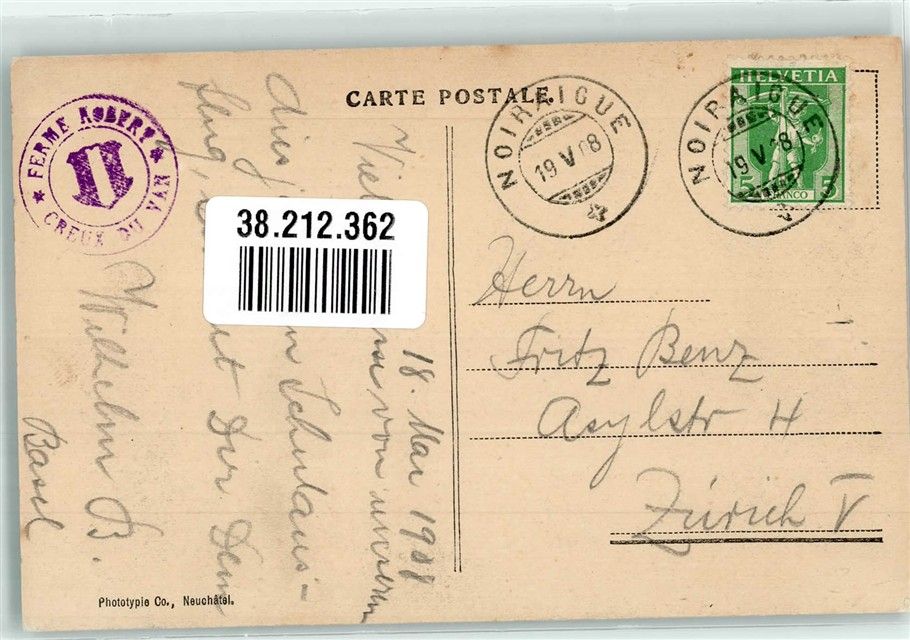 CARTE POSTALE.
FERME ROBERT
CREUX DU VAN
38.212.362
NOIRAIGUE
19 V 08
NOIRAIGUE
19 V 08
HELVETIA
5 FRANCO 5
18. Mai 1908
von unserm
Schulaus-
Dir Dein
Wilhelm B.
Basel
Herrn
Fritz Benz
Asylstr 4
Zürich V
Phototypie Co., Neuchâtel.